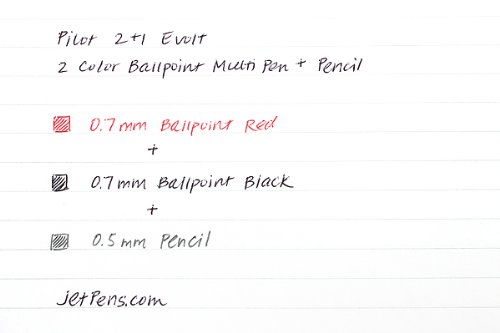 Pilot 2+1 Evolt
2 Color Ballpoint Multi Pen + Pencil
0.7mm Ballpoint Red
+
0.7mm Ballpoint Black
+
0.5mm Pencil
JetPens.com